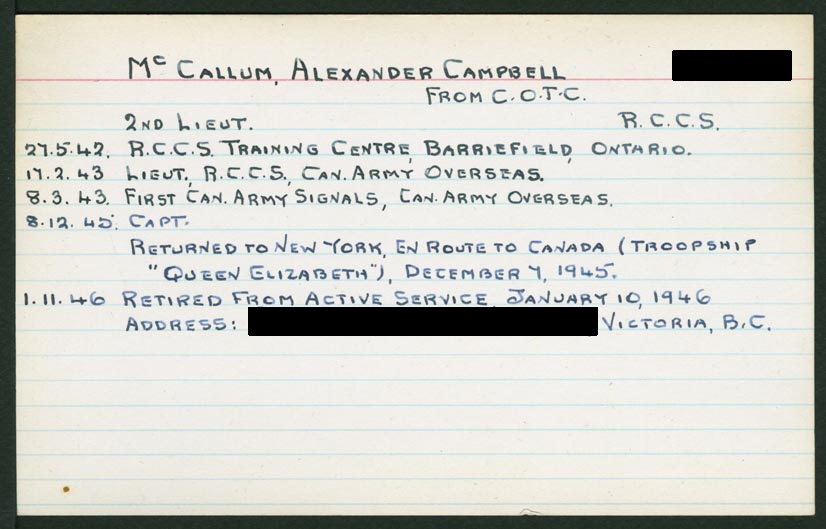 Mc CALLUM, ALEXANDER CAMPBELL
FROM C.O.T.C.
2ND LIEUT. R.C.C.S.
27.5.42. R.C.C.S. TRAINING CENTRE, BARRIEFIELD, ONTARIO.
17.2.43 LIEUT., R.C.C.S., CAN. ARMY OVERSEAS.
8.3.43. FIRST CAN. ARMY SIGNALS, CAN. ARMY OVERSEAS.
8.12.45. CAPT.
RETURNED TO NEW YORK, EN ROUTE TO CANADA (TROOPSHIP
"QUEEN ELIZABETH"), DECEMBER 7, 1945.
1.11.46 RETIRED FROM ACTIVE SERVICE, JANUARY 10, 1946
ADDRESS: VICTORIA, B.C.